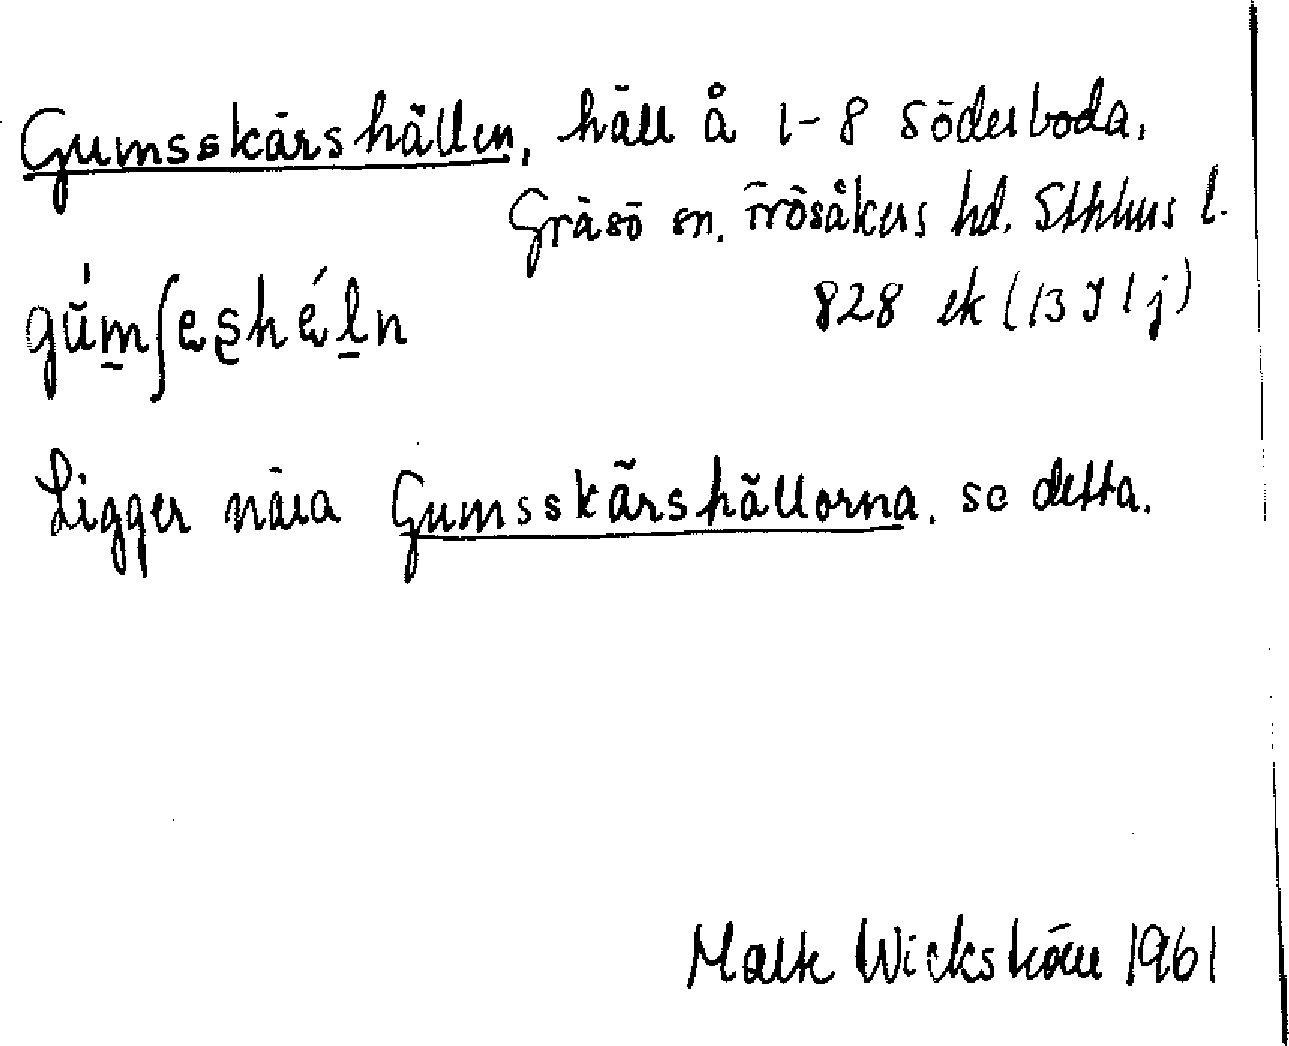 Gumsskärshällen, häll å 1-8 Söderboda,
Gräsö sn. Frösåkers hd. Sthlms l.
828 ek (13 I 1 j)
gúm̱ʃeshéḻn
Ligger nära Gumsskärshällorna, se detta.
Malte Wickström 1961